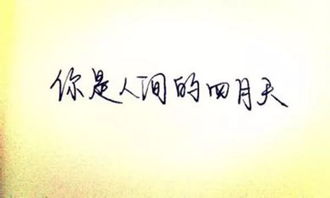 你是人间的四月天